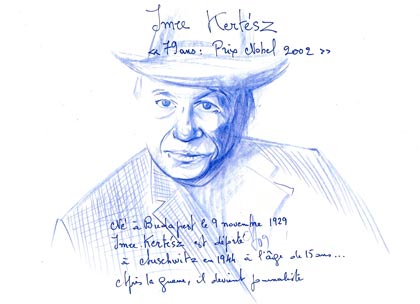 Imre Kertész
« 79 ans : Prix Nobel 2002 »
Né à Budapest le 9 novembre 1929
Imre Kertész est déporté
à Auschwitz en 1944 à l'âge de 15 ans...
Après la guerre, il devient journaliste